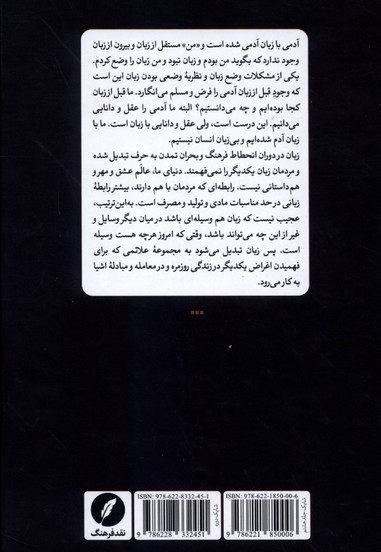 آدمی با زبان آدمی شده است و «من» مستقل از زبان و بیرون از زبان
وجود ندارد که بگوید من بودم و زبان نبود و من زبان را وضع کردم.
یکی از مشکلات وضع زبان و نظریۀ وضعی بودن زبان این است
که وجود قبل از زبان آدمی را فرض و مسلم می‌انگارد. ما قبل از زبان
کجا بوده‌ایم و چه می‌دانستیم؟ البته ما آدمی را عقل و دانایی
می‌دانیم. این درست است، ولی عقل و دانایی با زبان است. ما با
زبان آدم شده‌ایم و بی‌زبان انسان نیستیم.
زبان در دوران انحطاط فرهنگ و بحران تمدن به حرف تبدیل شده
و مردمان زبان یکدیگر را نمی‌فهمند. دنیای ما، عالَم عشق و مهر و
هم‌داستانی نیست. رابطه‌ای که مردمان با هم دارند، بیشتر رابطۀ
زبانی در حد مناسبات مادی و تولید و مصرف است. به‌این‌ترتیب،
عجیب نیست که زبان هم وسیله‌ای باشد در میان دیگر وسایل و
غیر از این چه می‌تواند باشد، وقتی که امروز هرچه هست وسیله
است. پس زبان تبدیل می‌شود به مجموعۀ علائمی که برای
فهمیدن اغراض یکدیگر در زندگی روزمره و در معامله و مبادلۀ اشیا
به کار می‌رود.
نقد فرهنگ
ISBN: 978-622-8332-45-1
9 786228 332451
شابک دوره
ISBN: 978-622-1850-00-6
9 786221 850006
شابک جلد هشتم